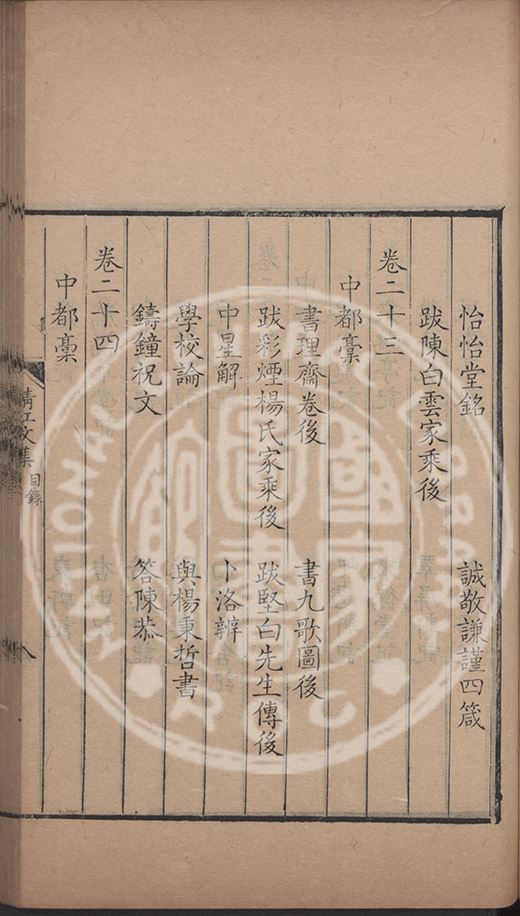 怡怡堂銘　誠敬謙謹四箴
跋陳白雲家乘後
卷二十三
中都稾
書理齋卷後　書九歌圖後
跋彩煙楊氏家乘後　跋堅白先生傳後
中星解　卜洛辨
學校論　與楊秉哲書
鑄鐘祝文　答陳恭
卷二十四
中都稾
清江文集　目錄　八